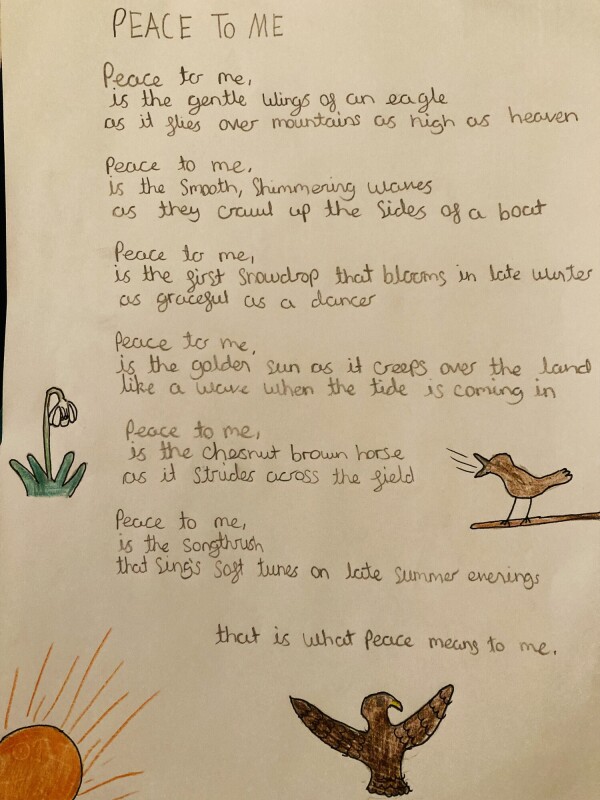 PEACE TO ME
Peace to me,
is the gentle wings of an eagle
as it flies over mountains as high as heaven
Peace to me,
is the smooth, shimmering waves
as they crawl up the sides of a boat
Peace to me,
is the first snowdrop that blooms in late winter
as graceful as a dancer
Peace to me,
is the golden sun as it creeps over the land
like a wave when the tide is coming in
Peace to me,
is the chesnut brown horse
as it strides across the field
Peace to me,
is the songthrush
that sing's soft tunes on late summer evenings
that is what peace means to me.